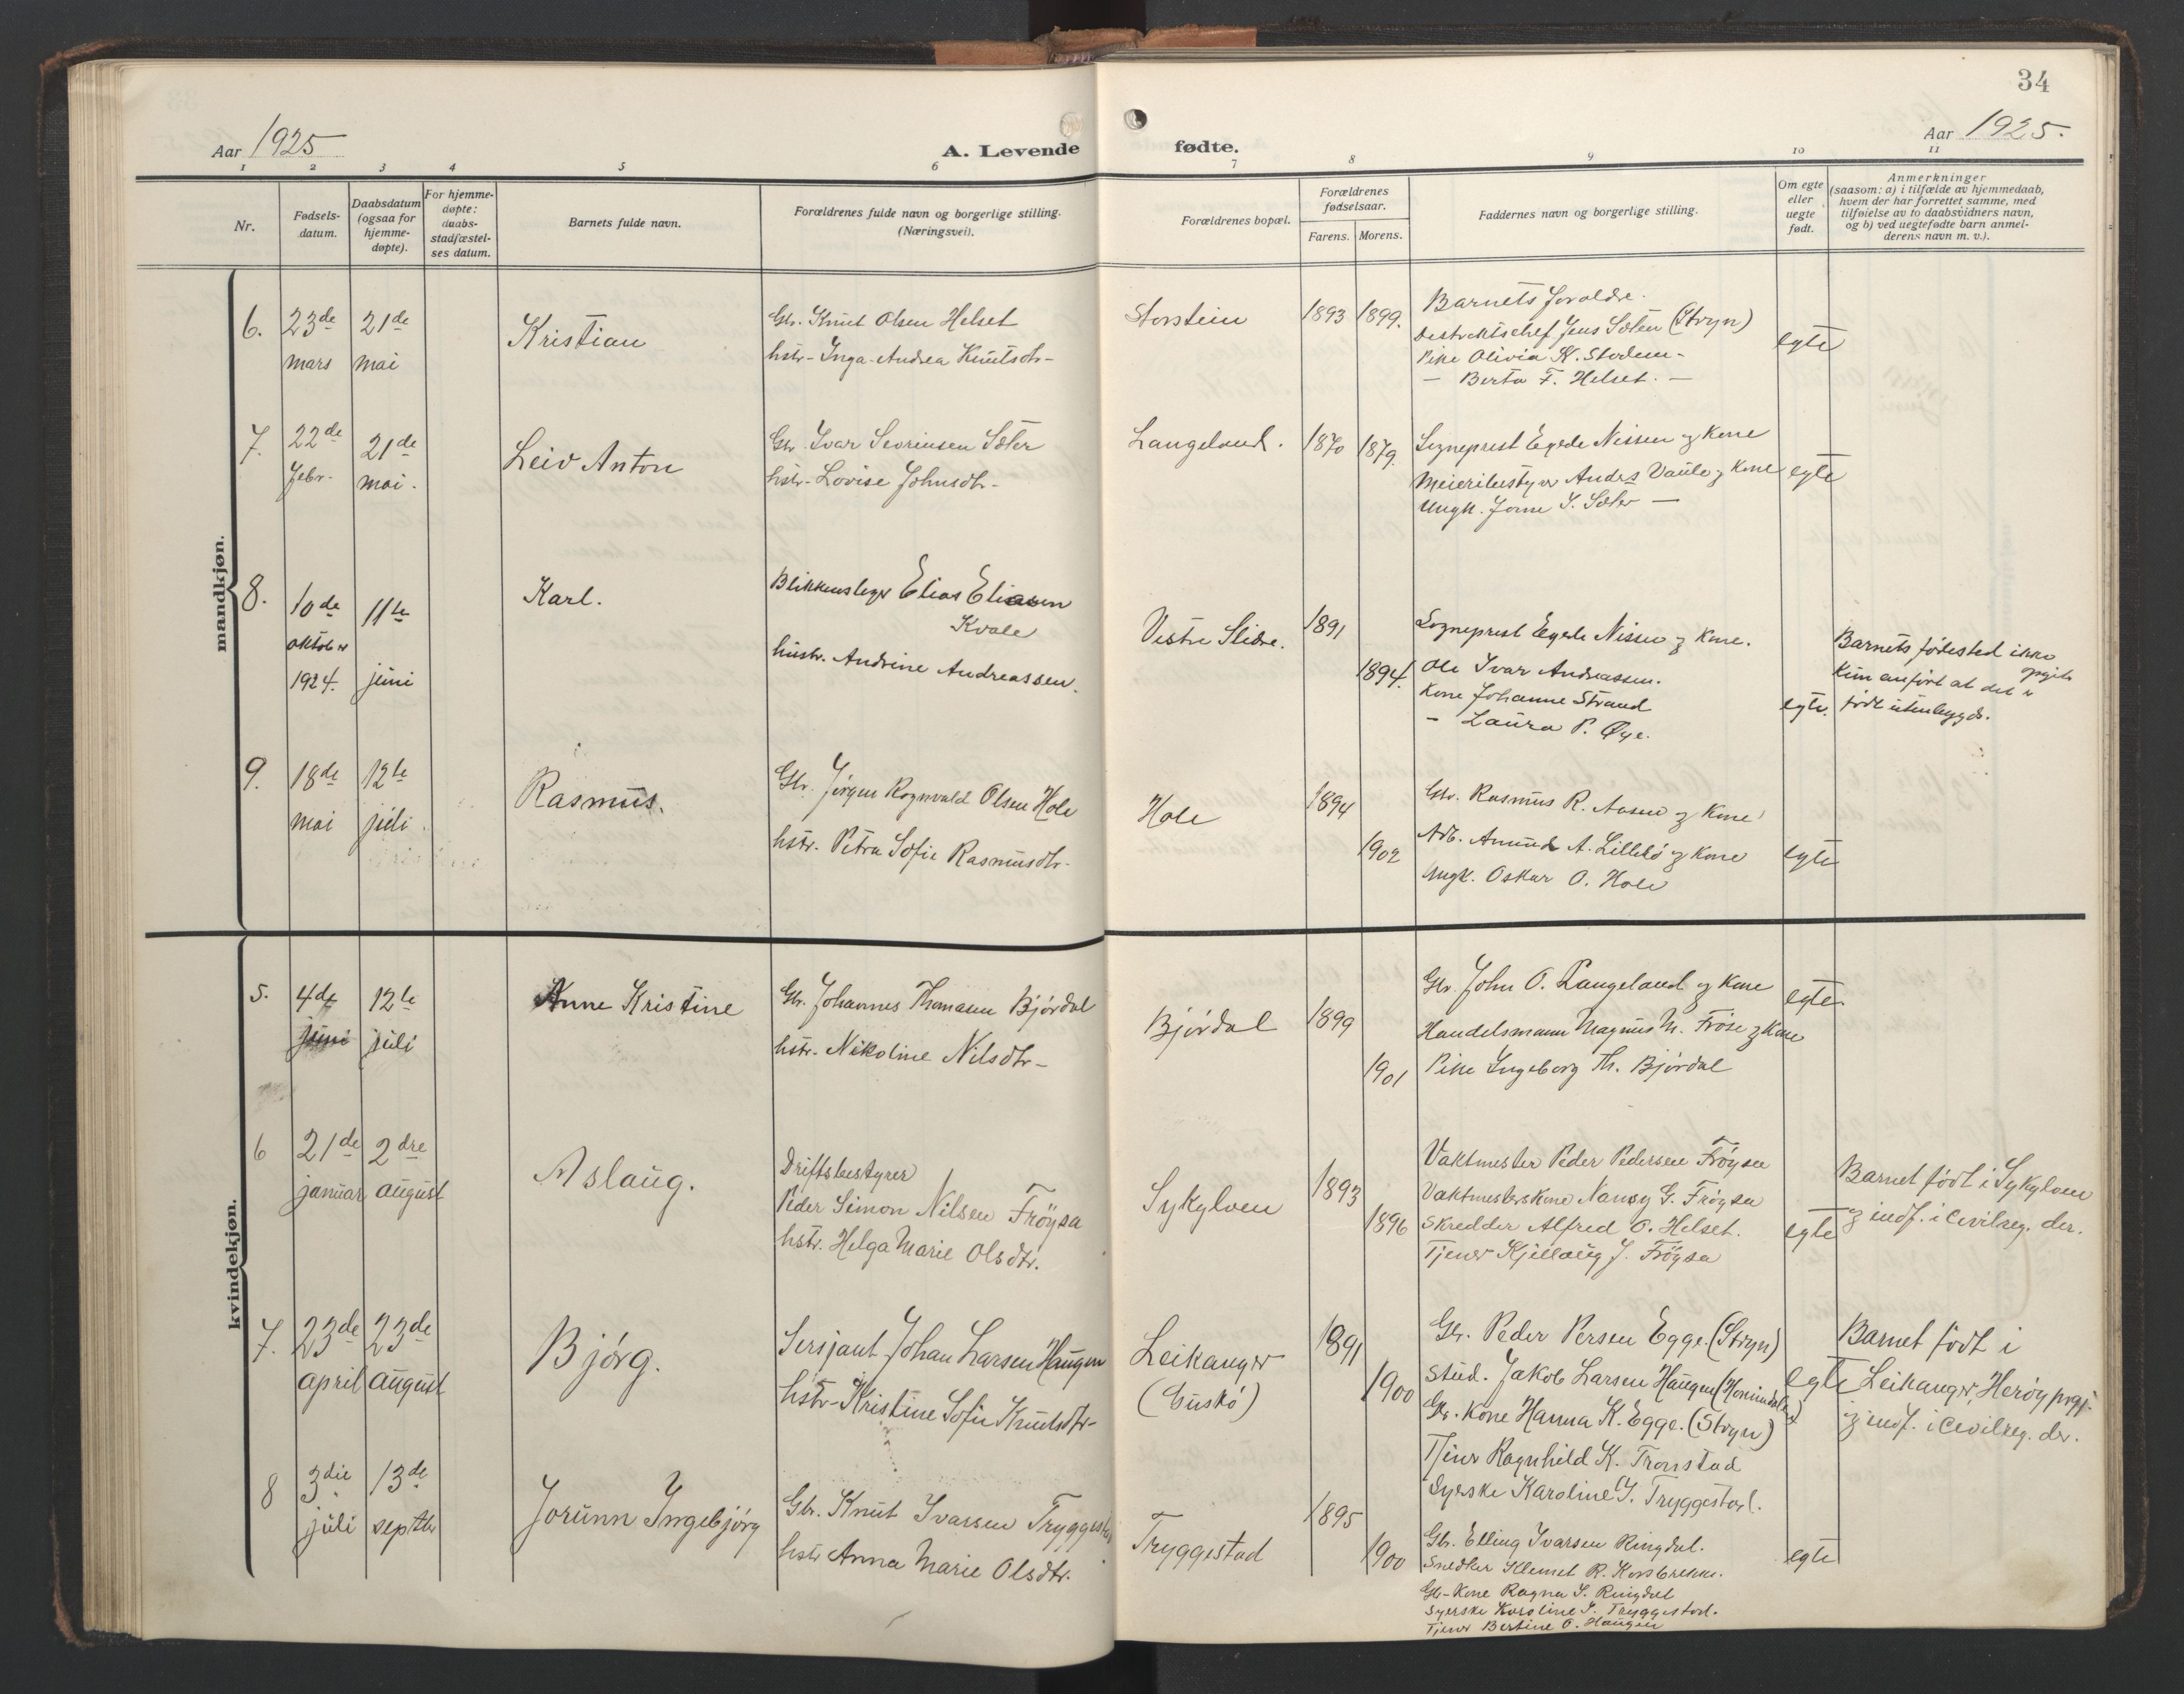 34
Aar 1925
A. Levende
fødte.
Aar 1925.
1 2 3 4 5 6 7 8 9 10 11
Nr.
Fødsels-
datum.
Daabsdatum
(ogsaa for
hjemme-
døpte).
For hjemme-
døpte:
daabs-
stadfæstel-
ses datum.
Barnets fulde navn.
Forældrenes fulde navn og borgerlige stilling.
(Næringsvei).
Forældrenes bopæl.
Forældrenes
fødselsaar.
Farens. Morens.
Faddernes navn og borgerlige stilling.
Om egte
eller
uegte
født.
Anmerkninger
(saasom: a) i tilfælde av hjemmedaab,
hvem der har forrettet samme, med
tilføielse av to daabsvidners navn,
og b) ved uegtefødte barn anmel-
derens navn m. v.).
mandkjøn.
6.
23de
mars
21de
mai
Kristian
Gbr. Knut Olsen Helset
hstr. Inga Andrea Knutsdtr-
Storstein
1893 1899.
Barnets foreldre.
Jens Sæten (Stryn)
Pike Olivia K.
— Berta F. Helset. —
egte
7.
22de
febr.
21de
mai.
Leiv Anton
Gbr. Ivar Sevrinsen Sæter
hstr. Lovise Johnsdtr-
Langeland.
1870 1879.
Sogneprest Egede Nissen og kone
Meieribestyrer Anders Vaule og kone
Ungk. Jorne S. Sæter —
egte
8.
10de
oktober
1924.
11te
juni
Karl.
Blikkenslager Elias Eliasen
Kvale
hustr. Andrine Andreassen.
Vestre Slidre.
1891
1894.
Sogneprest Egede Nissen og kone.
Ole Ivar Andreassen.
Kone Johanne Strand
- Laura P. Øye.
egte.
Barnets fødested ikke
opgit
kun anført at det er
født utenbygds.
9.
18de
mai
12te
juli.
Rasmus.
Gbr. Jørgen Rognvald Olsen Hole
hstr. Petra Sofie Rasmusdtr.
Hole
1894
1902
Gbr. Rasmus R. Aasen og kone
Arb. Amund A. Lillebø og kone
Ungk. Oskar O. Hole
egte
kvindekjøn.
5.
4de
juni
12te
juli
Anne Kristine
Gbr. Johannes Thomasen Bjørdal
hstr. Nikoline Nilsdtr-
Bjørdal
1899
1901
Gbr. John O. Langeland og kone
Handelsmann Magnus M. Frøse og kone
Pike Ingeborg Th. Bjørdal
egte.
6
21de
januar
2dre
august
Aslaug.
Driftsbestyrer
Peder Simon Nilsen Frøysa
hstr. Helga Marie Olsdtr.
Sykylven
1893
1896
Vaktmester Peder Pedersen Frøysa
Vaktmesterskone Nancy G. Frøysa
Skredder Alfred O. Helset.
Tjener Kjellaug J. Frøysa
egte
Barnet født i Sykylven
og indf. i civilreg. der.
7.
23de
april
23de
august
Bjørg.
Sersjant Johan Larsen Haugen
hstr. Kristine Sofie Knutsdtr-
Leikanger
(Guskø)
1891
1900
Gbr. Peder Persen Egge. (Stryn)
Stud. Jakob Larsen Haugen (Hornindalen)
Gbr. kone Hanna K. Egge. (Stryn)
Tjener Ragnhild K. Tronstad
Syerske Karoline I. Tryggestad.
egte
Barnet født i
Leikanger, Herøy prgj.
og indf. i civilreg. der.
8
3die
juli
13de
septbr
Jorunn Ingebjørg
Gbr. Knut Ivarsen Tryggestad
hstr Anna Marie Olsdtr.
Tryggestad
1895
1900
Gbr. Elling Ivarsen Ringdal.
Snedker Klemet R. Korsbrekke.
Gbr- kone Ragna S. Ringdal
Syerske Karoline I. Tryggestad.
Tjener Bertine O. Haugen
egte